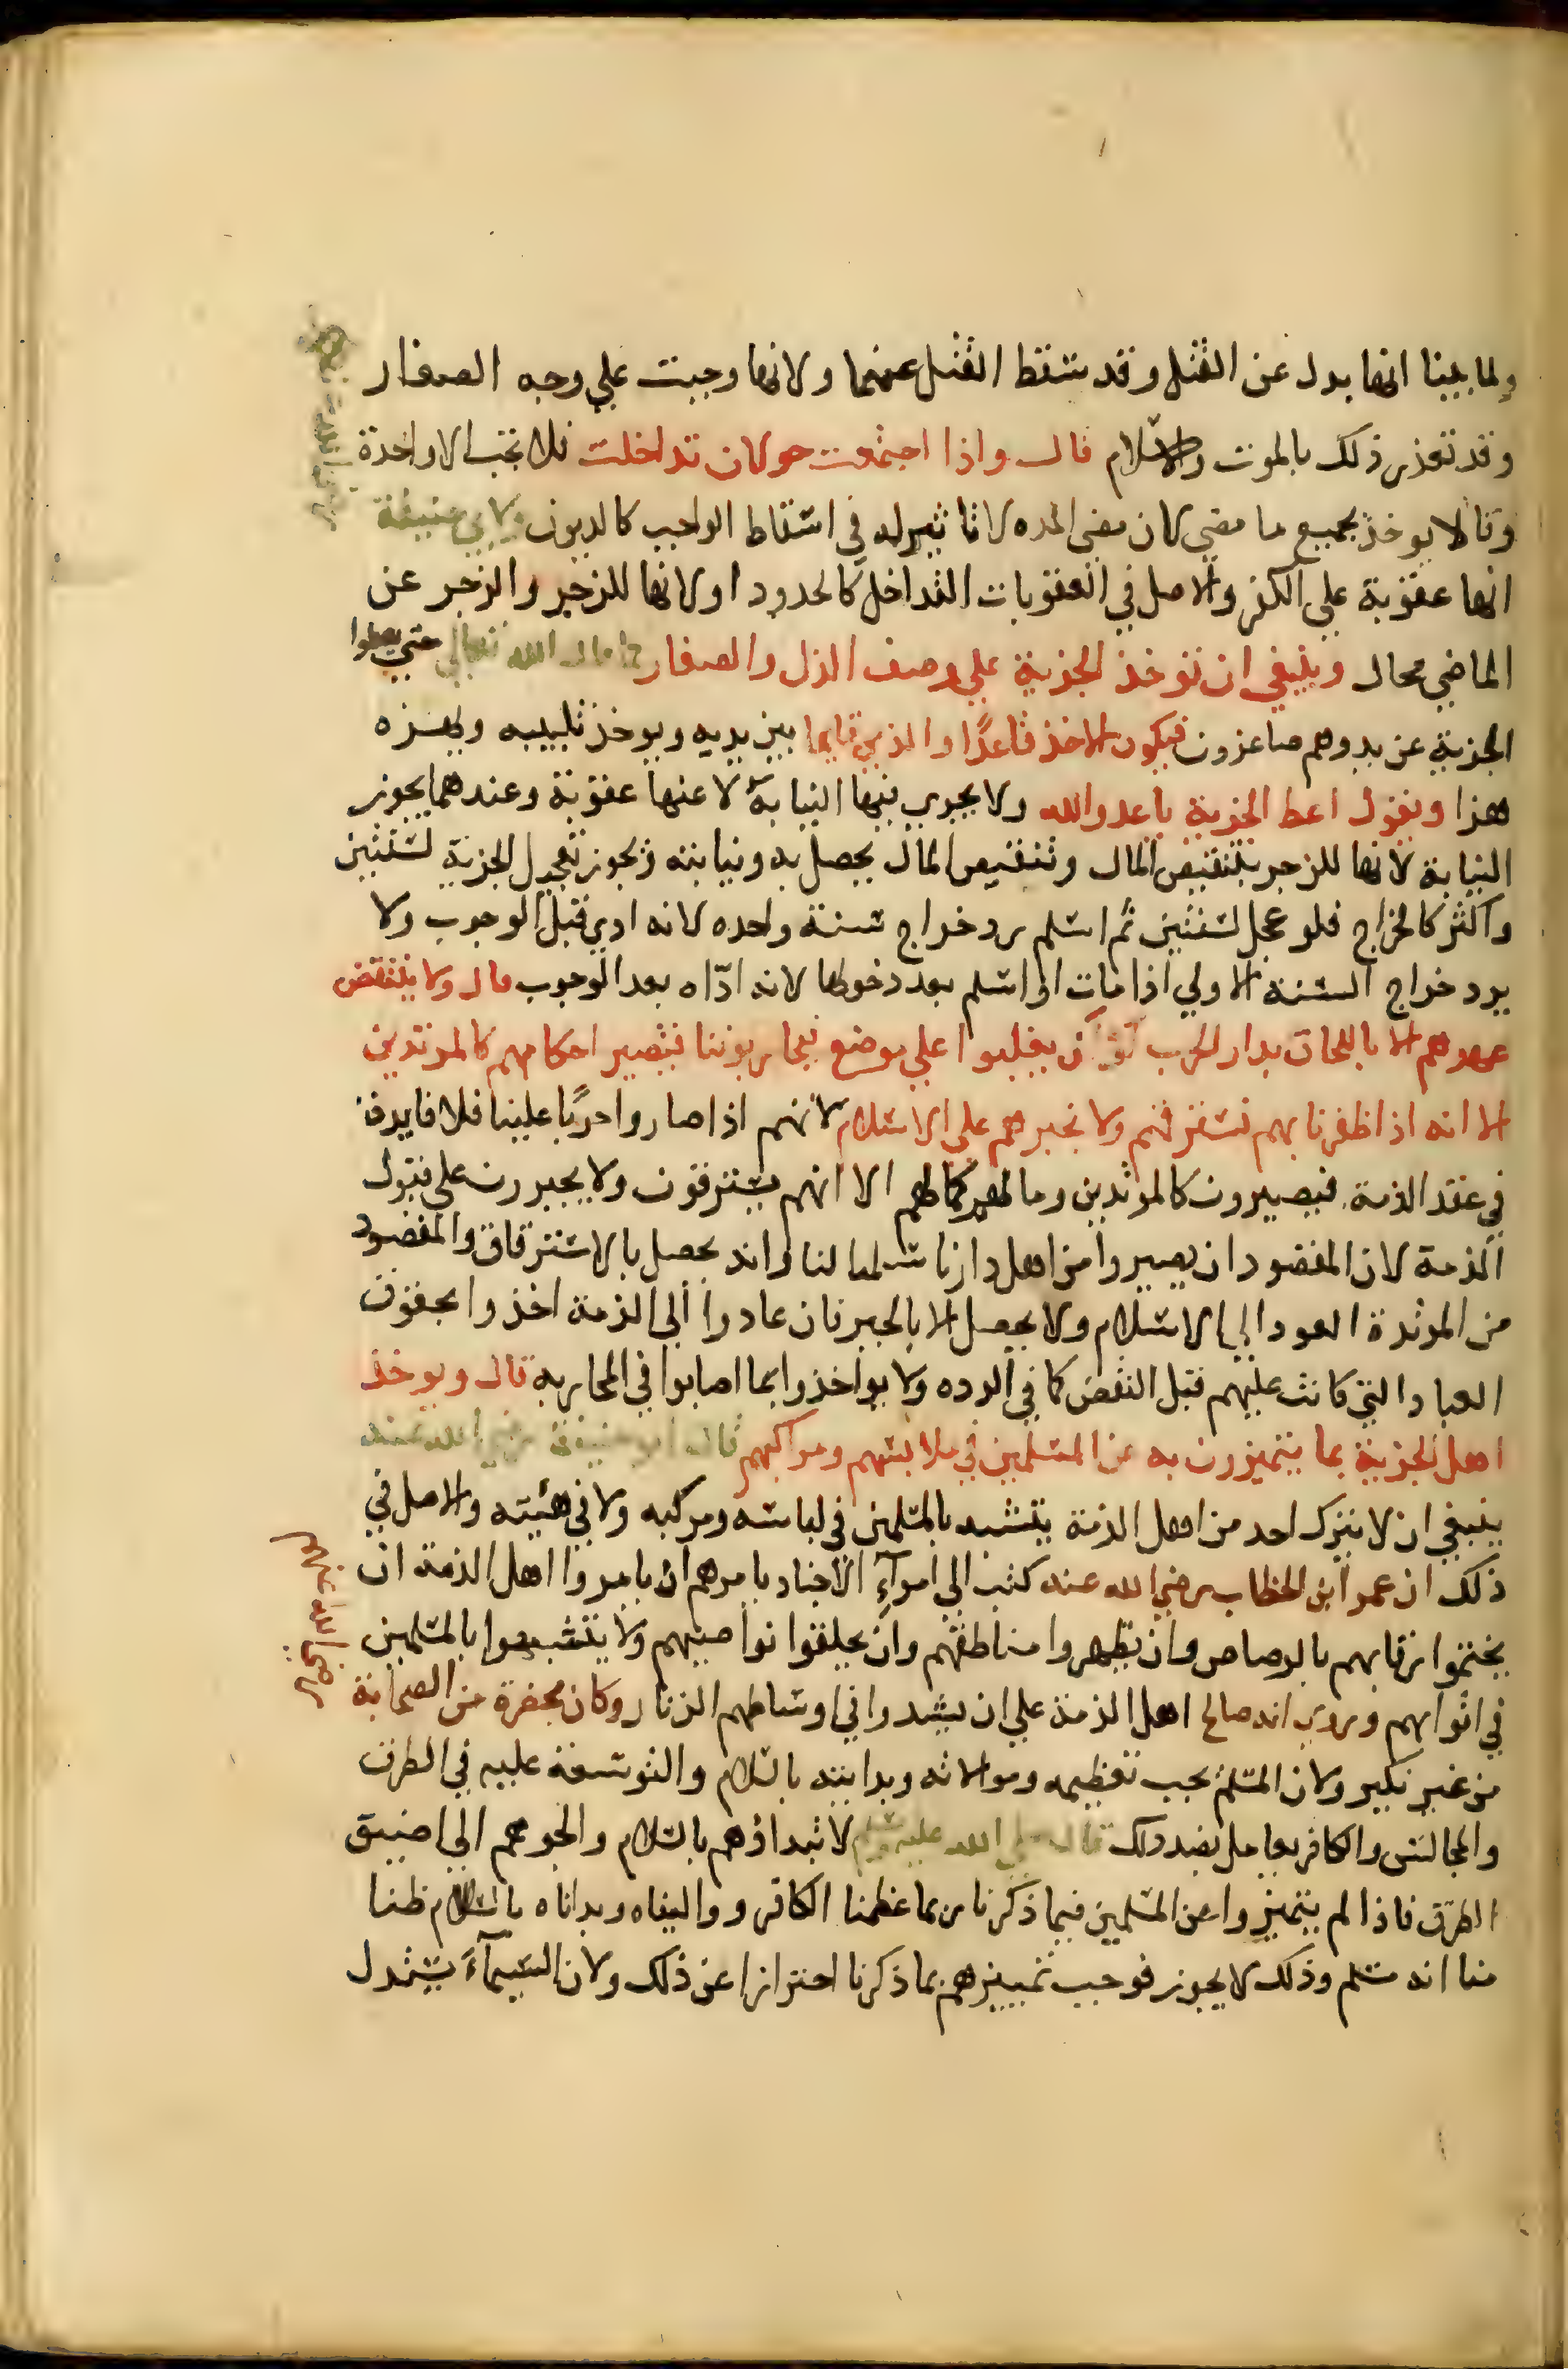 ولما بينا انها بدل عن القتل وقد سقط القتل عنهما ولانها وجبت علي وجه الصغار
وقد تعذر ذلك بالموت والاسلام قال واذا اجتمعت حولان تداخلت فلا تجب الا واحدة
وقالا يوخذ بجميع ما مضي لان مضي المده لا تاثير له في اسقاط الواجب كالديون ولابي حنيفة
انها عقوبة علي الكفر والاصل في العقوبات التداخل كالحدود او لانها للزجر والزجر عن
الماضي محال وينبغي ان تؤخذ الجزية علي وصف الذل والصغار كما قال الله تعالي حتي يعطوا
الجزية عن يد وهم صاغرون فيكون الاخذ قاعدًا والذمي قايما بين يديه ويوخذ تلبيبه ويهزه
هزا ويقول اعط الجزية يا عدو الله ولا يجري فيها النيابة لانها عقوبة وعندهما يجوز
النيابة لانها للزجر بتنقيص المال وتنقيص المال يحصل به وبنيابته ويجوز تعجيل الجزية لسنتين
واكثر كالخراج فلو عجل لسنتين ثم اسلم رد خراج سنة واحده لانه ادي قبل الوجوب ولا
يرد خراج السنة الاولي اذا مات او اسلم بعد دخولها لانه ادّاه بعد الوجوب قال ولا ينتقض
عهدهم الا باللحاق بدار الحرب او ان يغلبوا علي موضع فيحاربوننا فتصير احكامهم كالمرتدين
الا انه اذا ظفرنا بهم نسترقهم ولا نجبرهم علي الاسلام لانهم اذا صاروا حربًا علينا فلا فايدة
في عقد الذمة فيصيرون كالمرتدين ومالهم كمالهم الا انهم يسترقون ولا يجبرون علي قبول
الذمة لان المقصود ان يصيروا من اهل دارنا سلما لنا وانه يحصل بالاسترقاق والمقصود
من المرتدة العود الي الاسلام ولا يحصل الا بالجبر فان عادوا الي الذمة اخذوا بحقوق
العباد التي كانت عليهم قبل النقض كما في الرده ولا يواخذوا بما اصابوا في المحاربة قال ويوخذ
اهل الجزية بما يتميزون به عن المسلمين في ملابسهم ومراكبهم قال ابو حنيفة رضي الله عنه
ينبغي ان لا يترك احد من اهل الذمة يتشبه بالمسلمين في لباسه ومركبه ولا في هيئته والاصل في
ذلك ان عمر ابن الخطاب رضي الله عنه كتب الي امرآءِ الاجناد يامرهم ان يامروا اهل الذمة ان
يختموا رقابهم بالرصاص وان يظهروا مناطقهم وان يحلقوا نواصيهم ولا يتشبهوا بالمسلمين
في اثوابهم وروي انه صالح اهل الذمة علي ان يشدوا في اوساطهم الزنار وكان بحضرة من الصحابة
رضي الله عنهم
من غير نكير ولان المسلم يجب تعظيمه وموالاته وبدايته بالسلام والتوسعة عليه في الطرق
والمجالس والكافر يعامل بضد ذلك قال صلي الله عليه وسلم لا تبداؤهم بالسلام والجوهم الي اضيق
الطرق فاذا لم يتميزوا عن المسلمين فيما ذكرنا ربما عظمنا الكافر وواليناه وبداناه بالسلام ظنا
منا انه مسلم وذلك لا يجوز فوجب تمييزهم بما ذكرنا احترازا عن ذلك ولان السيمآءَ يستدل